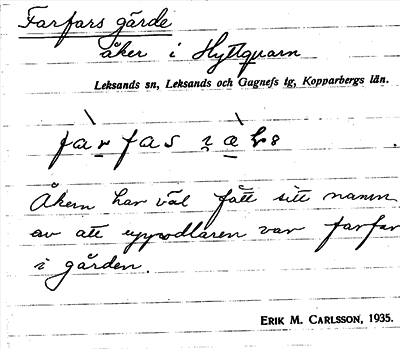 Farfars gärde
åker i Hyttquarn
Leksands sn, Leksands och Gagnefs tg, Kopparbergs län.
fàrfas
Åkern har väl fått sitt namn
av att uppodlaren var farfar
i gården.
ERIK M. CARLSSON, 1935.